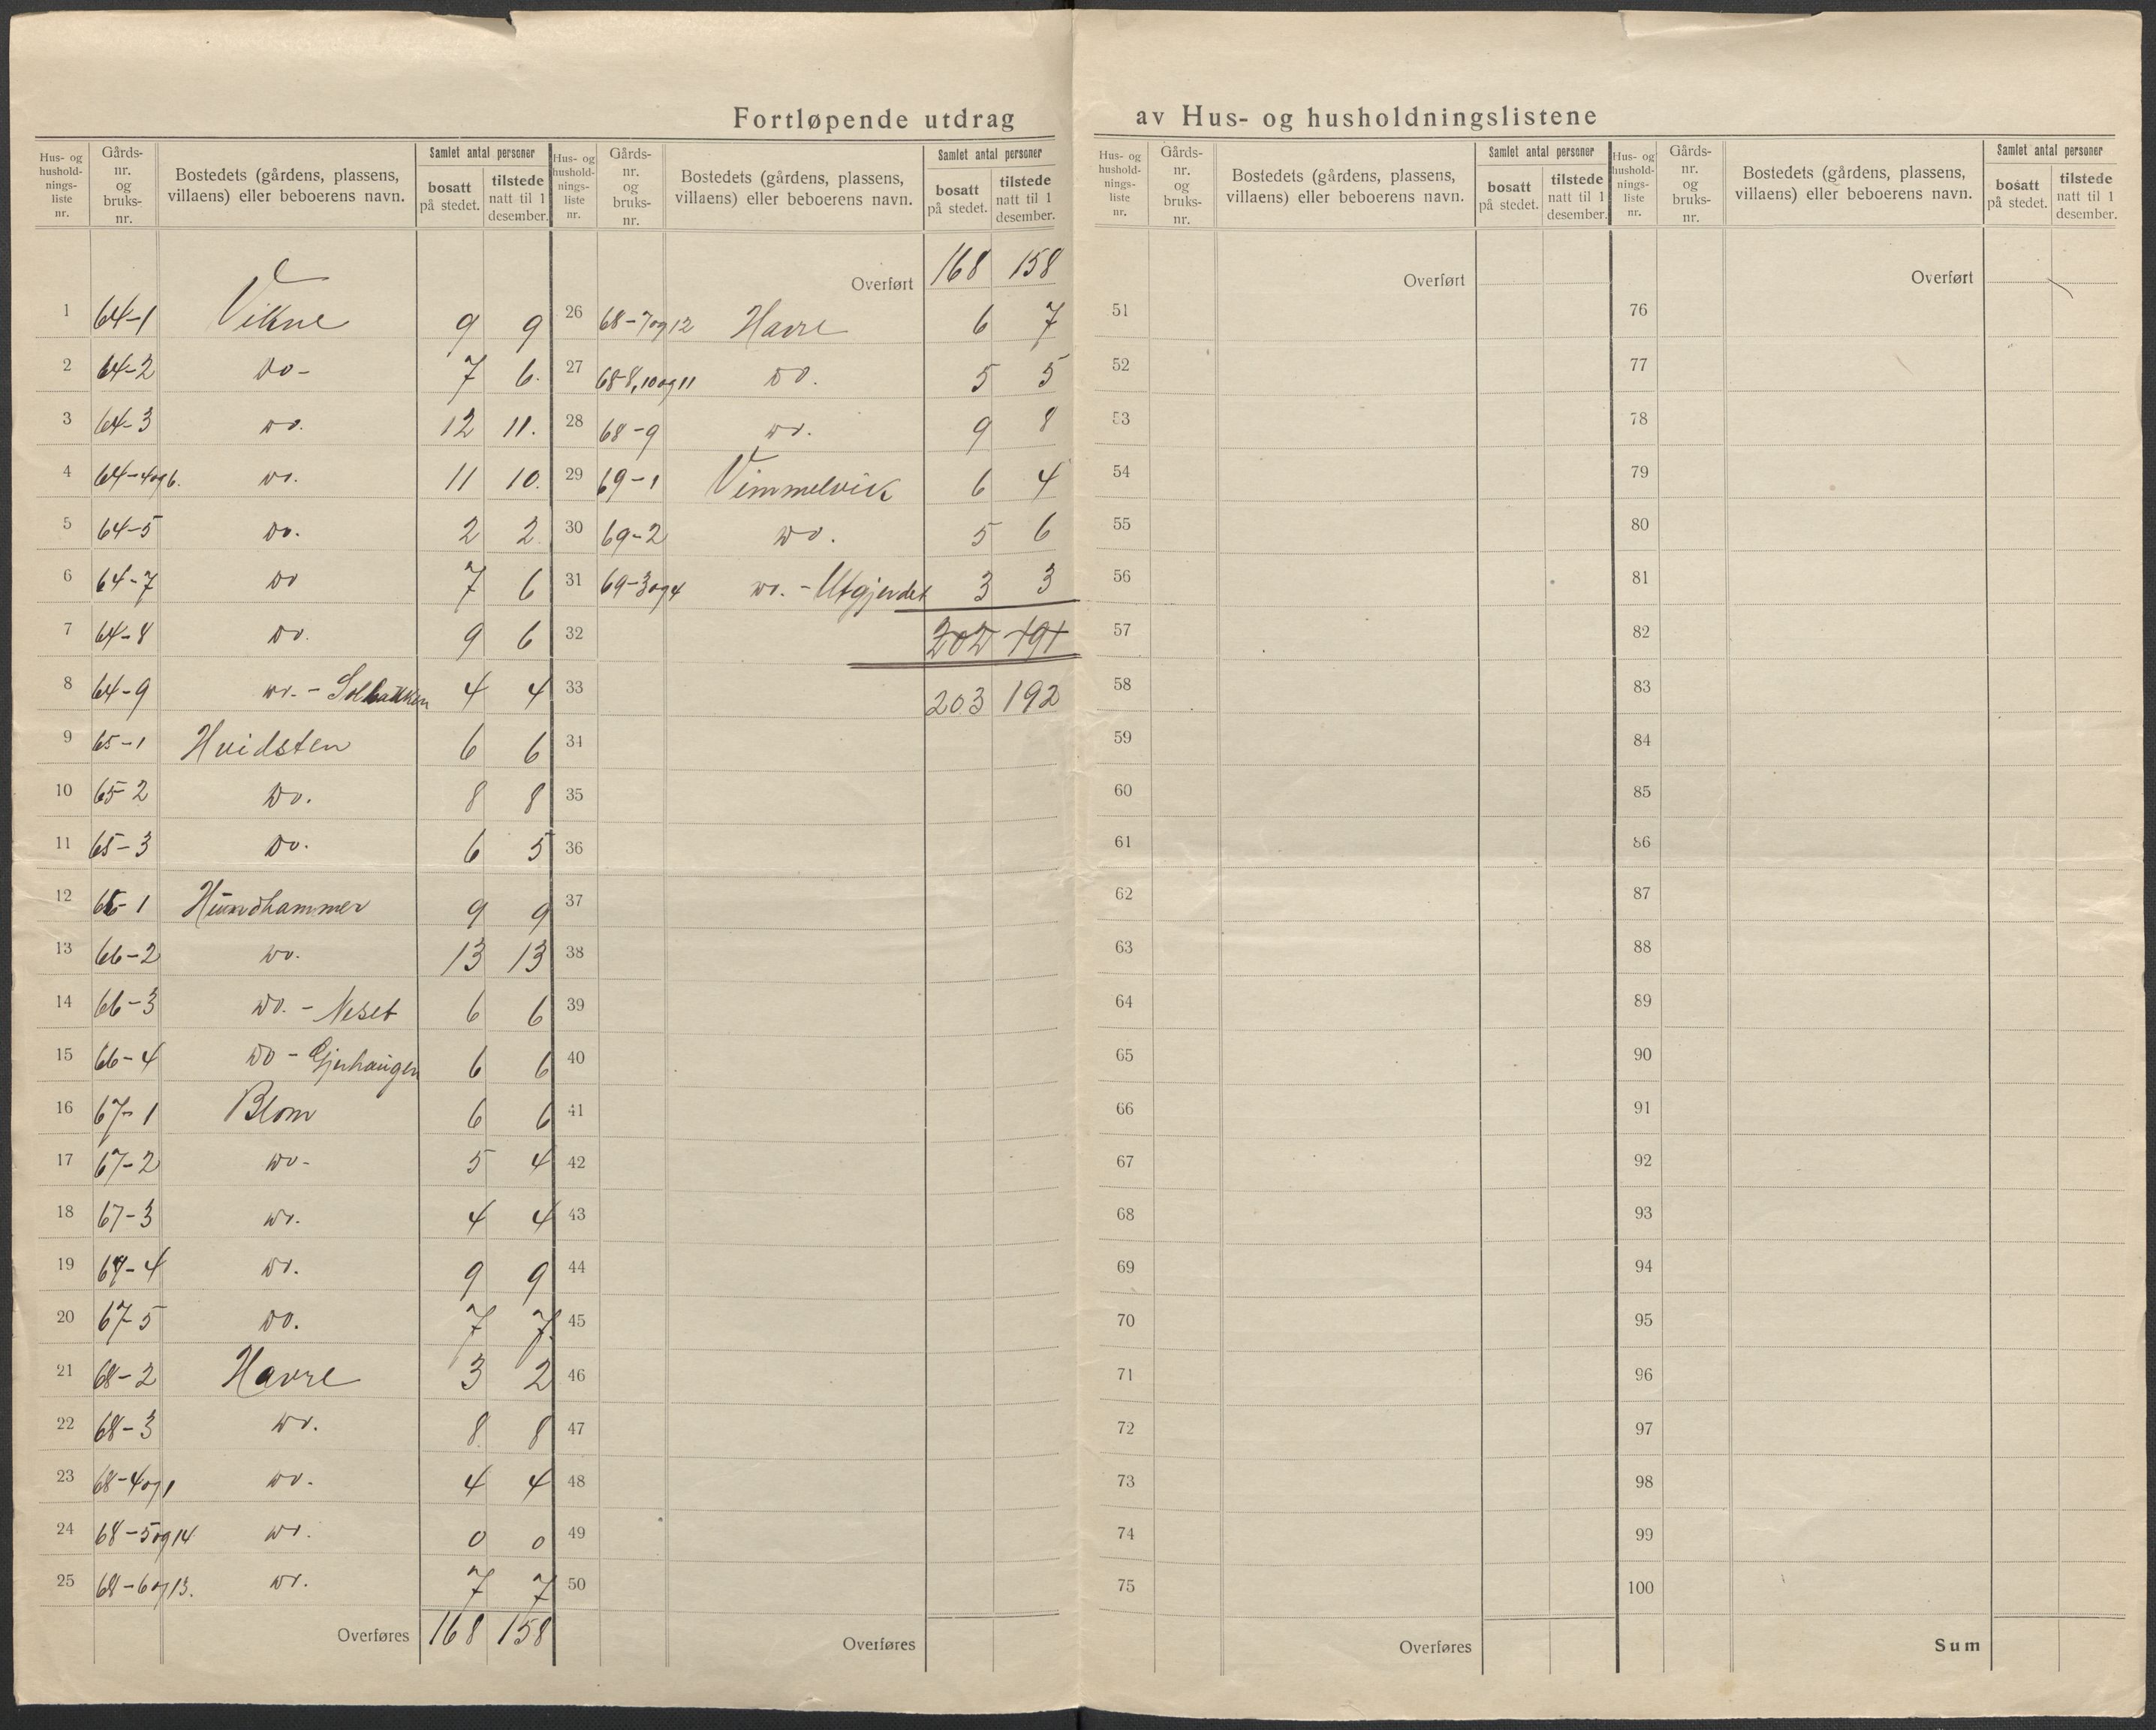 Fortløpende utdrag av Hus- og husholdningslistene
Hus- og hushold- nings- liste nr. | Gårds- nr. og bruks- nr. | Bostedets (gårdens, plassens, villaens) eller beboerens navn. | Samlet antal personer | bosatt på stedet. | tilstede natt til 1 desember.
1 64-1 Vikne 9 9
2 64-2 Do- 7 6.
3 64-3 Do. 12 11.
4 64-4 og 6. Do. 11 10.
5 64-5 Do. 2 2
6 64-7 Do 7 6
7 64-8 Do. 9 6
8 64-9 Do. - Solbakken 4 4
9 65-1 Hvidsten 6 6
10 65-2 Do. 8 8
11 65-3 Do. 6 5
12 66-1 Hundhammer 9 9
13 66-2 Do. 13 13
14 66-3 Do. - Neset 6 6
15 66-4 Do - Gjerhaugen 6 6
16 67-1 Blom 6 6
17 67-2 Do- 5 4
18 67-3 Do. 4 4
19 67-4 Do. 9 9
20 67-5 Do. 7 7.
21 68-2 Havre 3 2
22 68-3 Do. 8 8
23 68-4 og 1 Do. 4 4
24 68-5 og 14 Do. 0 0
25 68-6 og 13. Do. 7 7
Overføres 168 158
Hus- og hushold- nings- liste nr. | Gårds- nr. og bruks- nr. | Bostedets (gårdens, plassens, villaens) eller beboerens navn. | Samlet antal personer | bosatt på stedet. | tilstede natt til 1 desember.
Overført 168 158
26 68-7 og 12 Havre 6 7
27 68-8, 10 og 11 Do. 5 5
28 68-9 Do. 9 8
29 69-1 Vimmelvik 6 4
30 69-2 Do. 5 6
31 69-3 og 4 Do. - Utgjerdet 3 3
32 202 191
33 203 192
34
35
36
37
38
39
40
41
42
43
44
45
46
47
48
49
50
Overføres
Hus- og hushold- nings- liste nr. | Gårds- nr. og bruks- nr. | Bostedets (gårdens, plassens, villaens) eller beboerens navn. | Samlet antal personer | bosatt på stedet. | tilstede natt til 1 desember.
Overført
51
52
53
54
55
56
57
58
59
60
61
62
63
64
65
66
67
68
69
70
71
72
73
74
75
Overføres
Hus- og hushold- nings- liste nr. | Gårds- nr. og bruks- nr. | Bostedets (gårdens, plassens, villaens) eller beboerens navn. | Samlet antal personer | bosatt på stedet. | tilstede natt til 1 desember.
Overført
76
77
78
79
80
81
82
83
84
85
86
87
88
89
90
91
92
93
94
95
96
97
98
99
100
Sum